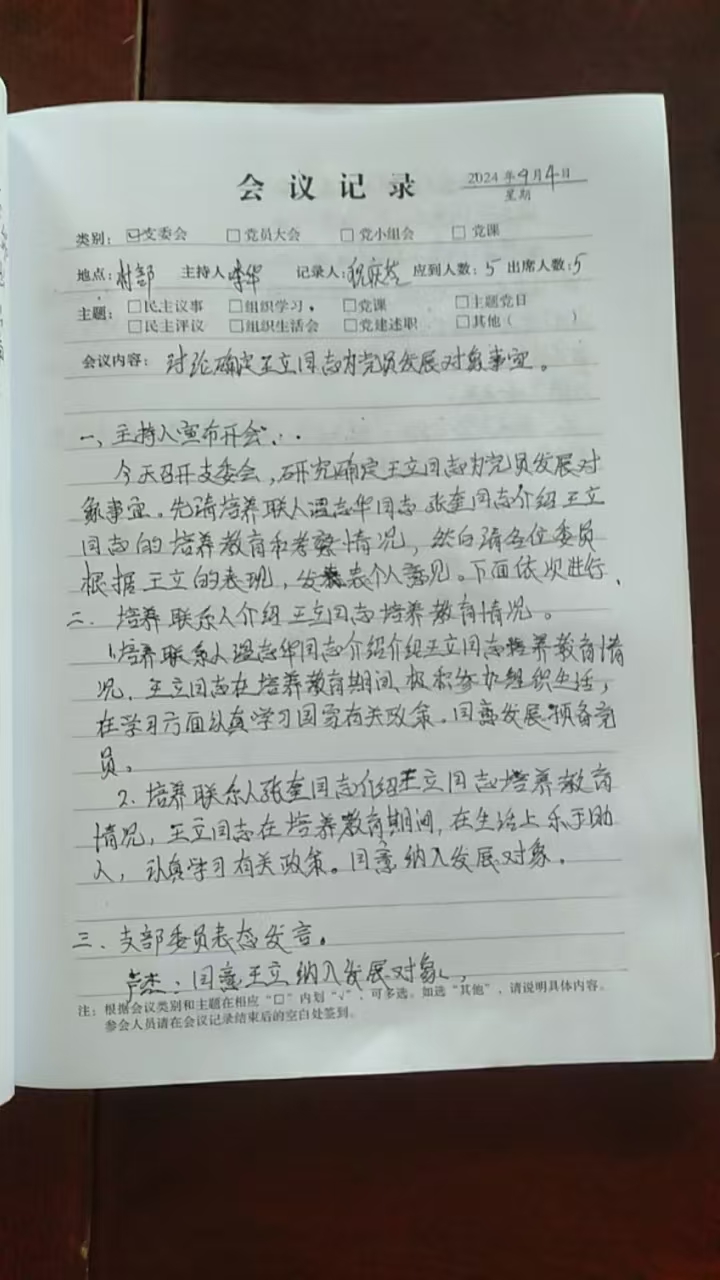 会议记录
2024年9月4日
星期
类别：☑支委会 □党员大会 □党小组会 □党课
地点：村部 主持人 华 记录人： 应到人数：5 出席人数：5
主题：□民主议事 □组织学习， □党课 □主题党日
□民主评议 □组织生活会 □党建述职 □其他（ ）
会议内容：讨论确定王立同志为党员发展对象事宜。
一、主持人宣布开会：
今天召开支委会，研究确定王立同志为党员发展对
象事宜。先请培养联人温志华同志 张奎同志介绍王立
同志的培养教育和考察情况，然后请各位委员
根据王立的表现，发表个人意见。下面依次进行，
二、培养联系人介绍王立同志培养教育情况。
1.培养联系人温志华同志介绍介绍王立同志培养教育情
况，王立同志在培养教育期间、极积参加组织生活，
在学习方面认真学习国家有关政策。同意发展预备党
员。
2.培养联系人张奎同志介绍王立同志培养教育
情况，王立同志在培养教育期间，在生活上乐于助
人，认真学习有关政策。同意纳入发展对象。
三、支部委员表态发言。
芦杰：同意王立纳入发展对象，
注：根据会议类别和主题在相应“□”内划“√”，可多选。如选“其他”，请说明具体内容。
参会人员请在会议记录结束后的空白处签到。